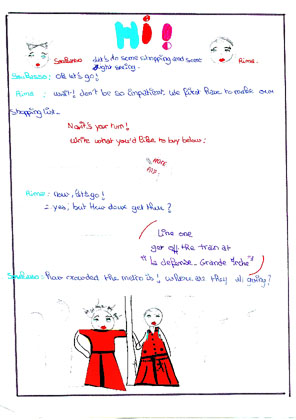 Hi!
let's do some shopping and some
sight seeing.
Rima
Ok let's go!
Rima : wait! don't be so impatient. We first have to make our
shopping list.
Now it's your turn!
Write what you'd like to buy below:
Rima: Now, let's go!
= yes, but How do we get there?
Line one
get off the train at
"la défense - Grande Arche"
: how crowded the metro is! where are they all going?